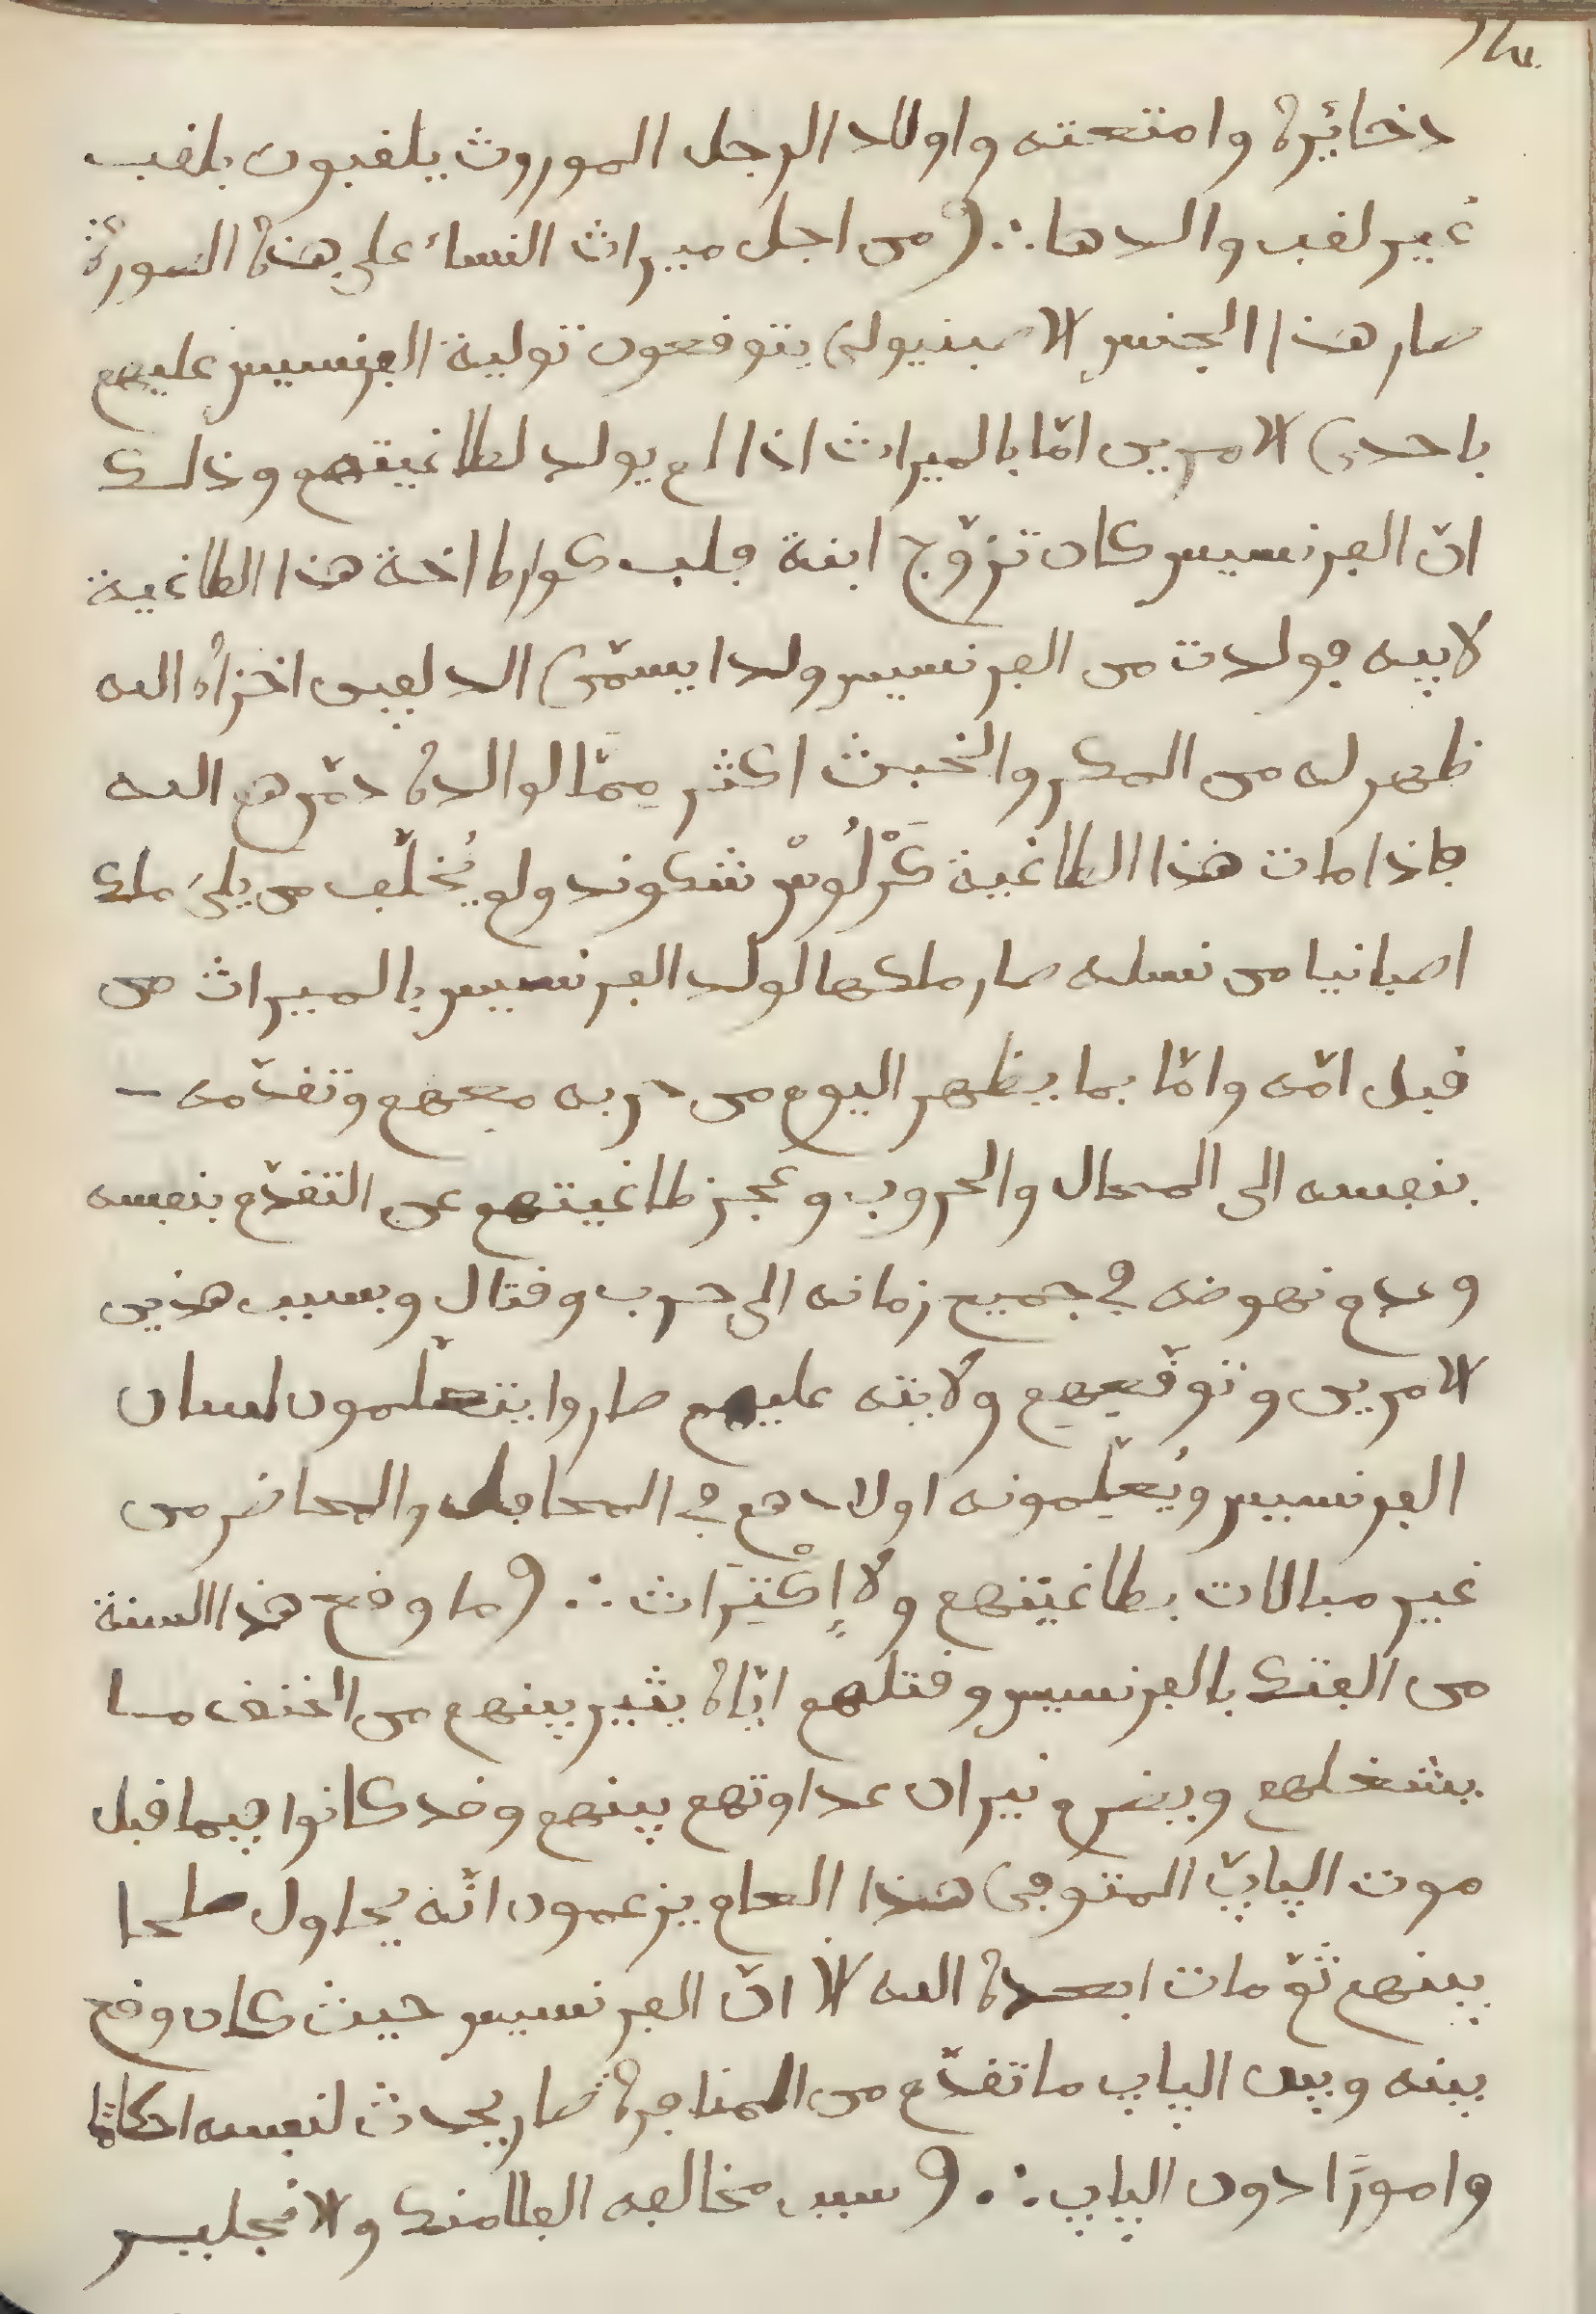 ذخائره وامتعته واولاد الرجل الموروث يلقبون بلقب
غير لقب والدها ∴ ومن اجل ميراث النساء على هذه الصورة
صار هذا الجنس الاصبنيولي يتوقعون تولية الفرنسيس عليهم
باحدى الامرين امّا بالميراث اذا لم يولد لطاغيتهم وذلك
انّ الفرنسيس كان تزوّج ابنة فلب كوارط اخة هذا الطاغية
لابيه فولدت من الفرنسيس ولدا يسمّى الدلفين اخزاه الله
ظهر له من المكر والخبث اكثر مِمَّا لوالده دمّرهم الله
فاذا مات هذا الطاغية كَرْلُوسْ شكوند ولم يُخلّف من يلي ملك
اصبانيا من نسله صار ملكها لولد الفرنسيس بالميراث من
قبل امّه وامّا بما يظهر اليوم من حربه معهم وتقدّمه
بنفسه الى المحال والحروب وعجز طاغيتهم عن التقدّم بنفسه
وعدم نهوضه في جميع زمانه الى حرب وقتال وبسبب هذين
الامرين وتوقّعهم ولايته عليهم صاروا يتعلّمون لسان
الفرنسيس ويُعلِّمونه اولادهم في المحافل والمحاضر من
غير مبالات بطاغيتهم ولا إكْتِرَاث ∴ وما وقع هذا السنة
من الفتك بالفرنسيس وقتلهم ايّاه يثير بينهم من الحنق ما
يشغلهم ويضرم نيران عداوتهم بينهم وقد كانوا فيما قبل
موت الپاپّ المتوفى هذا العام يزعمون انّه يحاول صلحا
بينهم ثمّ مات ابعده الله الا انّ الفرنسيس حيث كان وقع
بينه وبين الپاپ ما تقدّم من المنافرة صار يحدث لنفسه احكامًا
وامورًا دون الپاپ ∴ وسبب مخالفه الفلامنك والانجليس